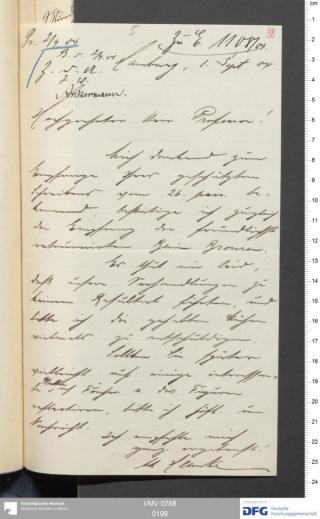 Pr. 2/9 04
5
Zu E. 1108/04
98
Hamburg, 1. Sept 04
Z. d. A.
Ankermann.
Hochgeehrter Herr Professor!
Mich dankend zum
Empfange Ihres geschätzten
Schreibens vom 26. pass. be-
kennend, bestätige ich zugleich
den Empfang der freundlichst
retournierten Benin Bronzen.
Es thut mir leid,
daß unsere Verhandlungen zu
keinem Resultat führten, und
bitte ich die gehabten Mühen
vielmals zu entschuldigen.
Sollten Sie später
vielleicht auf einige
Fächer &
reflectieren, bitte ich höfl. um
Nachricht.
Ich empfehle mich
ganz ergebenst
cm
1
2
3
4
5
6
7
8
9
10
11
12
13
14
15
16
17
18
19
20
21
22
23
24
Ethnologisches Museum
Staatliche Museen zu Berlin
I/MV 0768
0198
DFG
Deutsche
Forschungsgemeinschaft